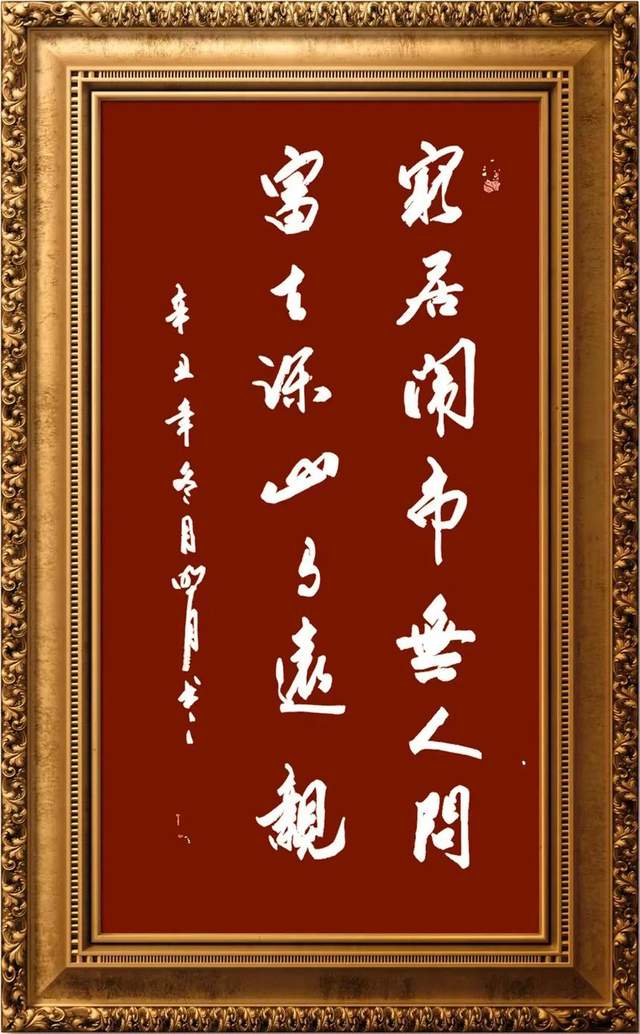 窮居闹市無人問
富在深山有遠親
辛丑年冬月明月书